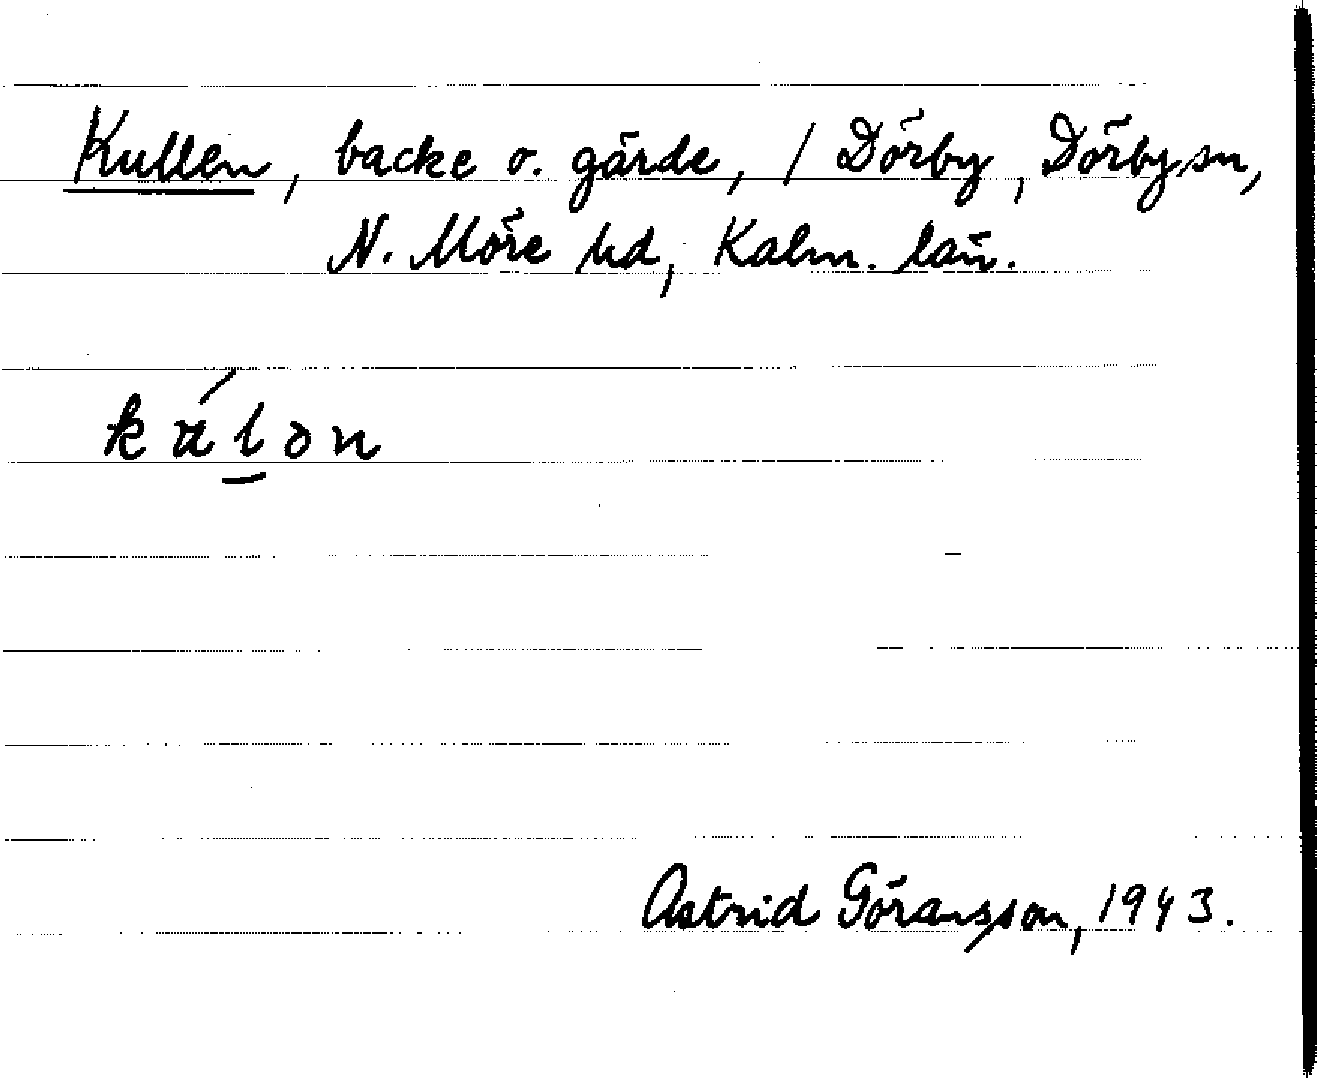 Kullen, backe o. gärde, i Dörby, Dörby sn,
N. Möre hd, Kalm. län.
kúlon
Astrid Göransson, 1943.